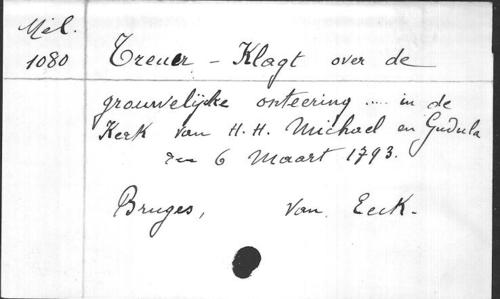 Mél.
1080
Treuer - Klagt over de
grouwelijcke onteering ..... in de
Kerk van H. H. Michael en Gudula
den 6 Maart 1793.
Bruges, Van Eeck.